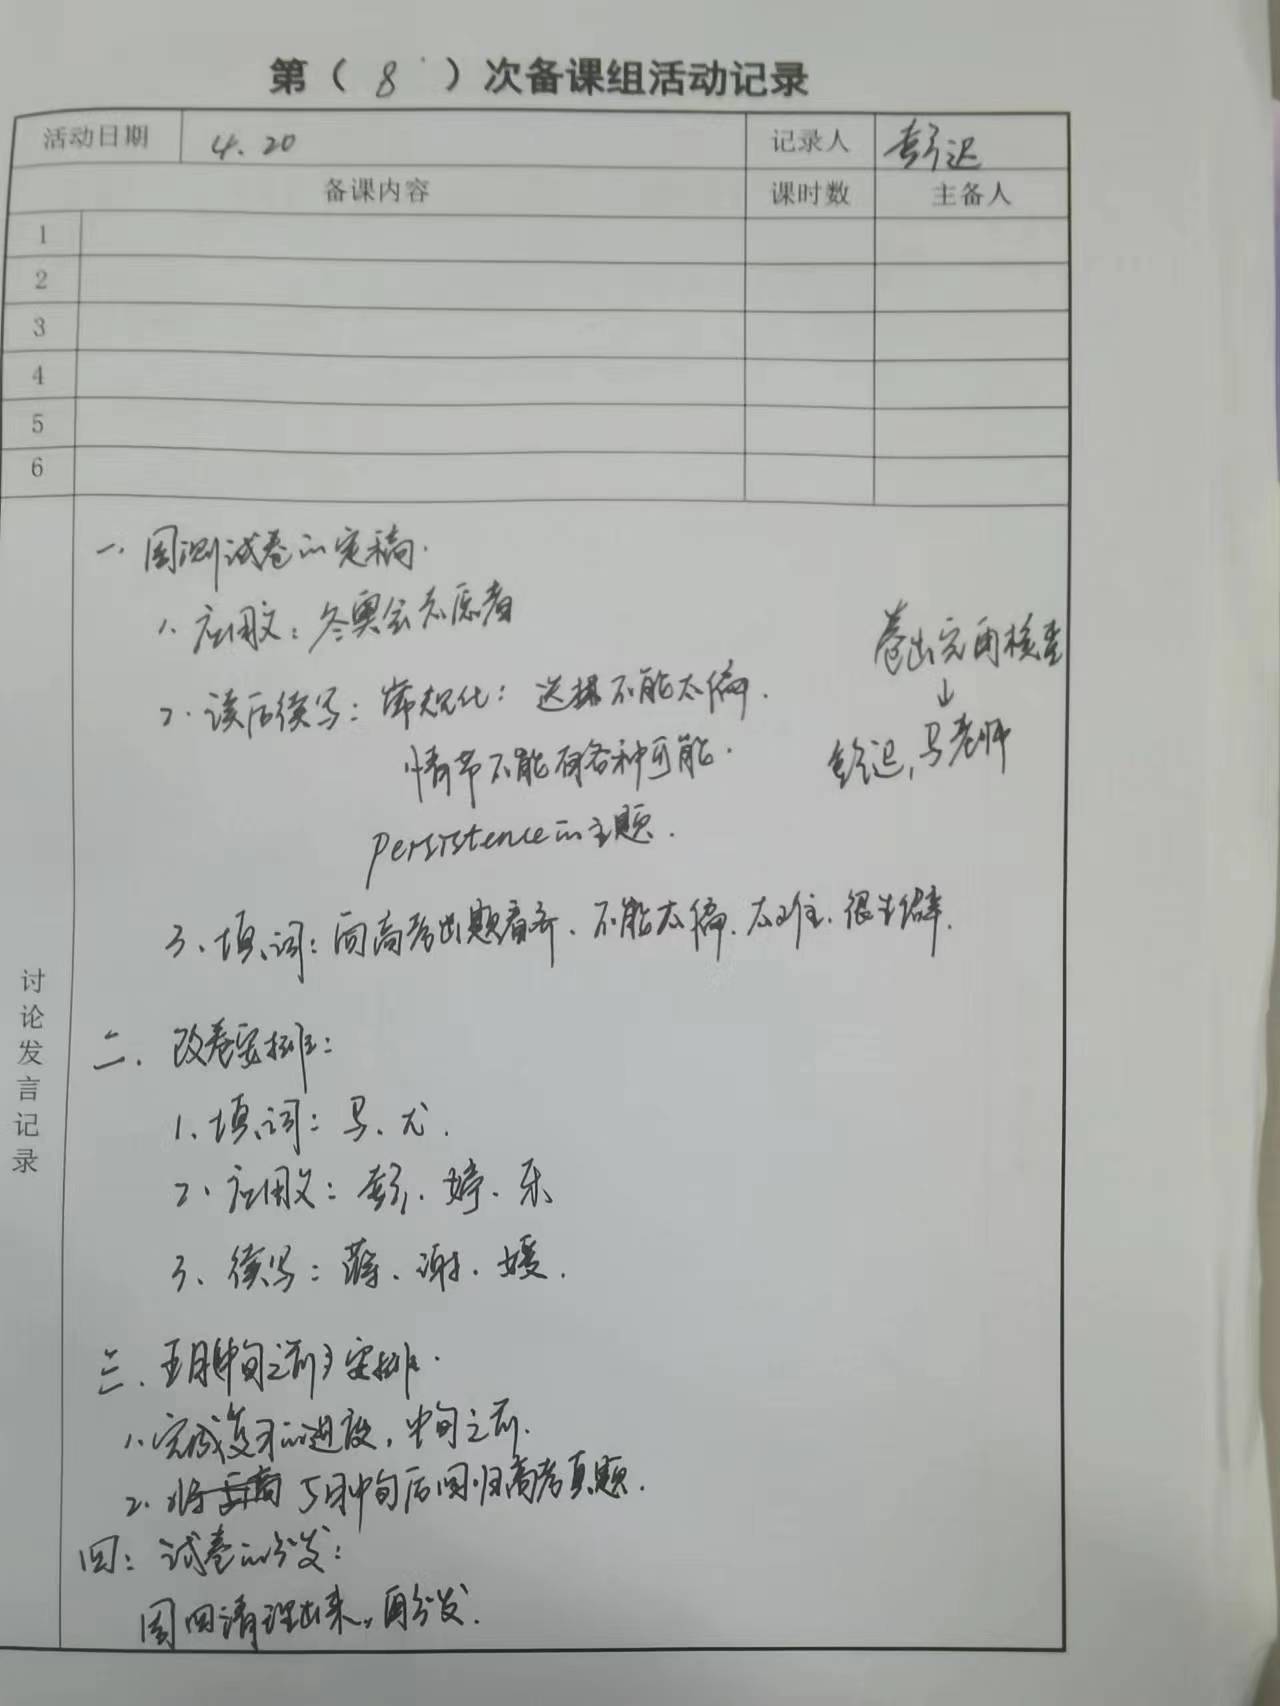 第（8）次备课组活动记录
活动日期 4.20 记录人
备课内容 课时数 主备人
1
2
3
4
5
6
讨论发言记录
一.周测试卷的定稿.
1.应用文：冬奥会志愿者
2.读后续写：常规化：选择不能太偏.
情节不能有各种可能.
persistence的主题.
卷出完再核查
↓
迟,马老师
3.填词：向高考出题看齐、不能太偏、太难、很生僻.
二.改卷安排：
1.填词：马、尤.
2.应用文：彭、婷、乐
3.续写：薛、谢、媛.
三.五月中旬之前安排.
1.完成复习的进度,中旬之前.
2.将 5月中旬后回归高考真题.
四：试卷的分发：
周四清理出来,再分发.